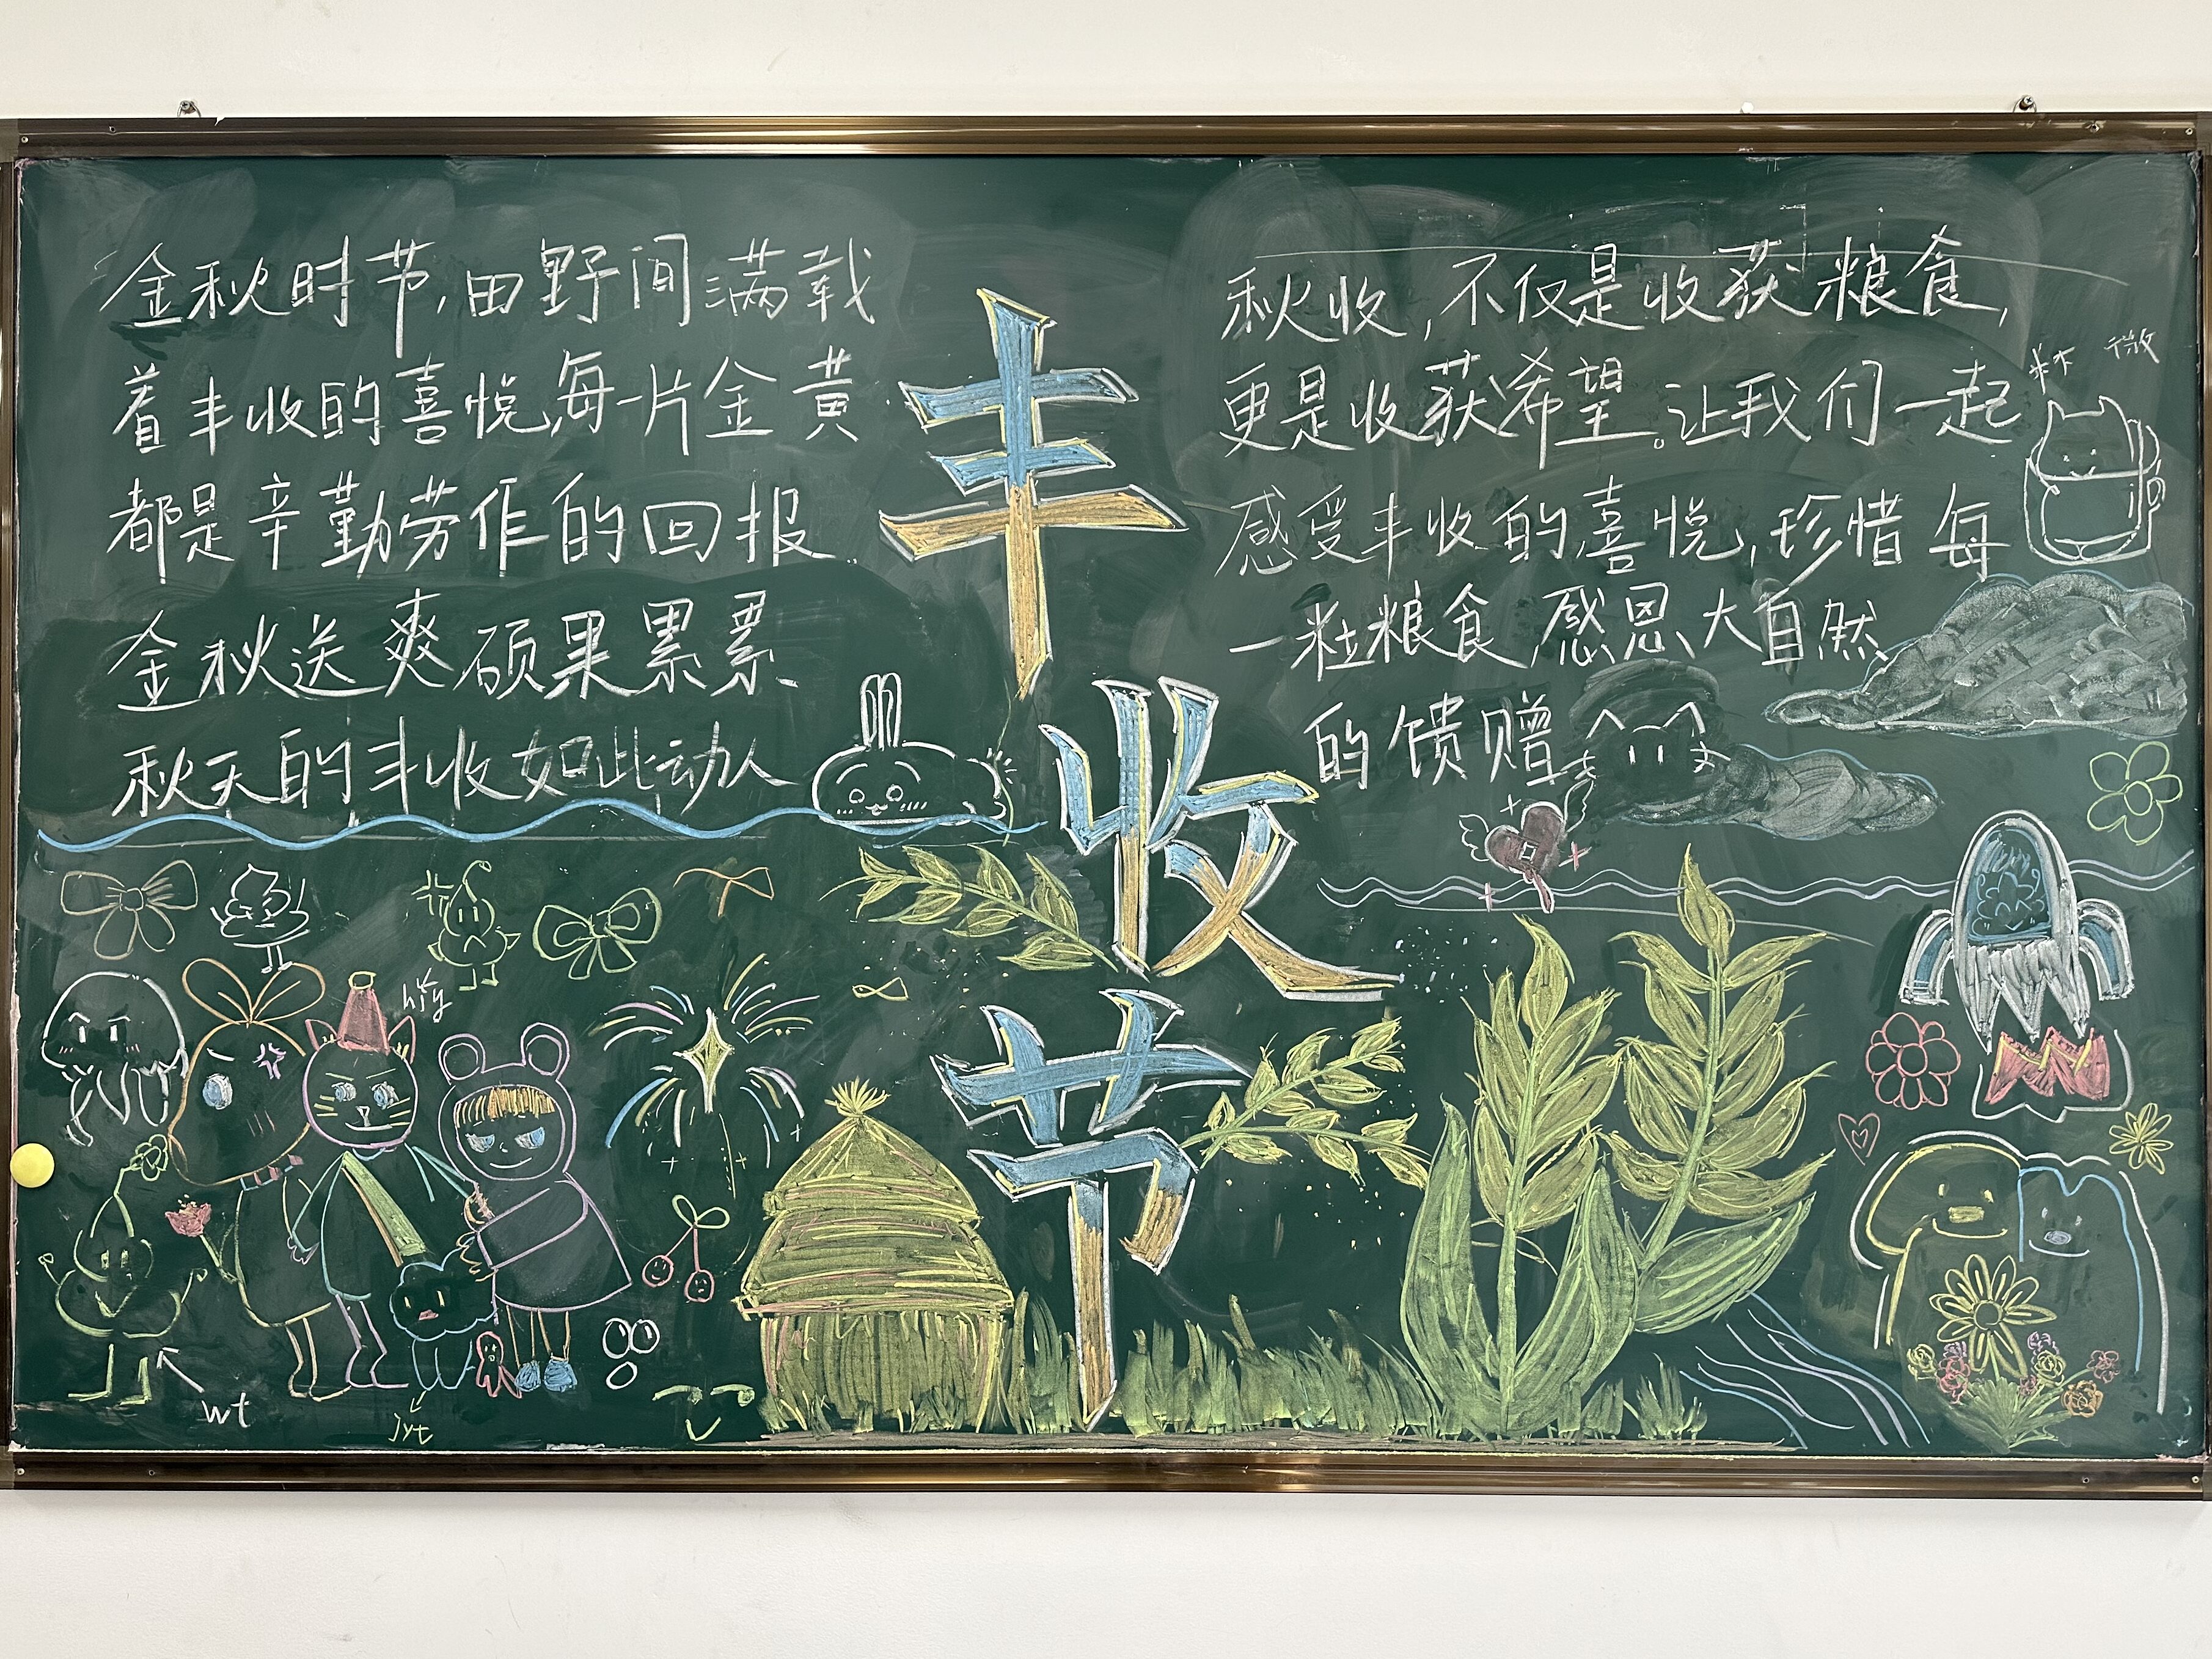 金秋时节,田野间满载
着丰收的喜悦,每一片金黄
都是辛勤劳作的回报.
金秋送爽硕果累累
秋天的丰收如此动人
丰
收
节
秋收,不仅是收获粮食,
更是收获希望。让我们一起
感受丰收的喜悦,珍惜每
一粒粮食,感恩大自然
的馈赠
wt
jyt